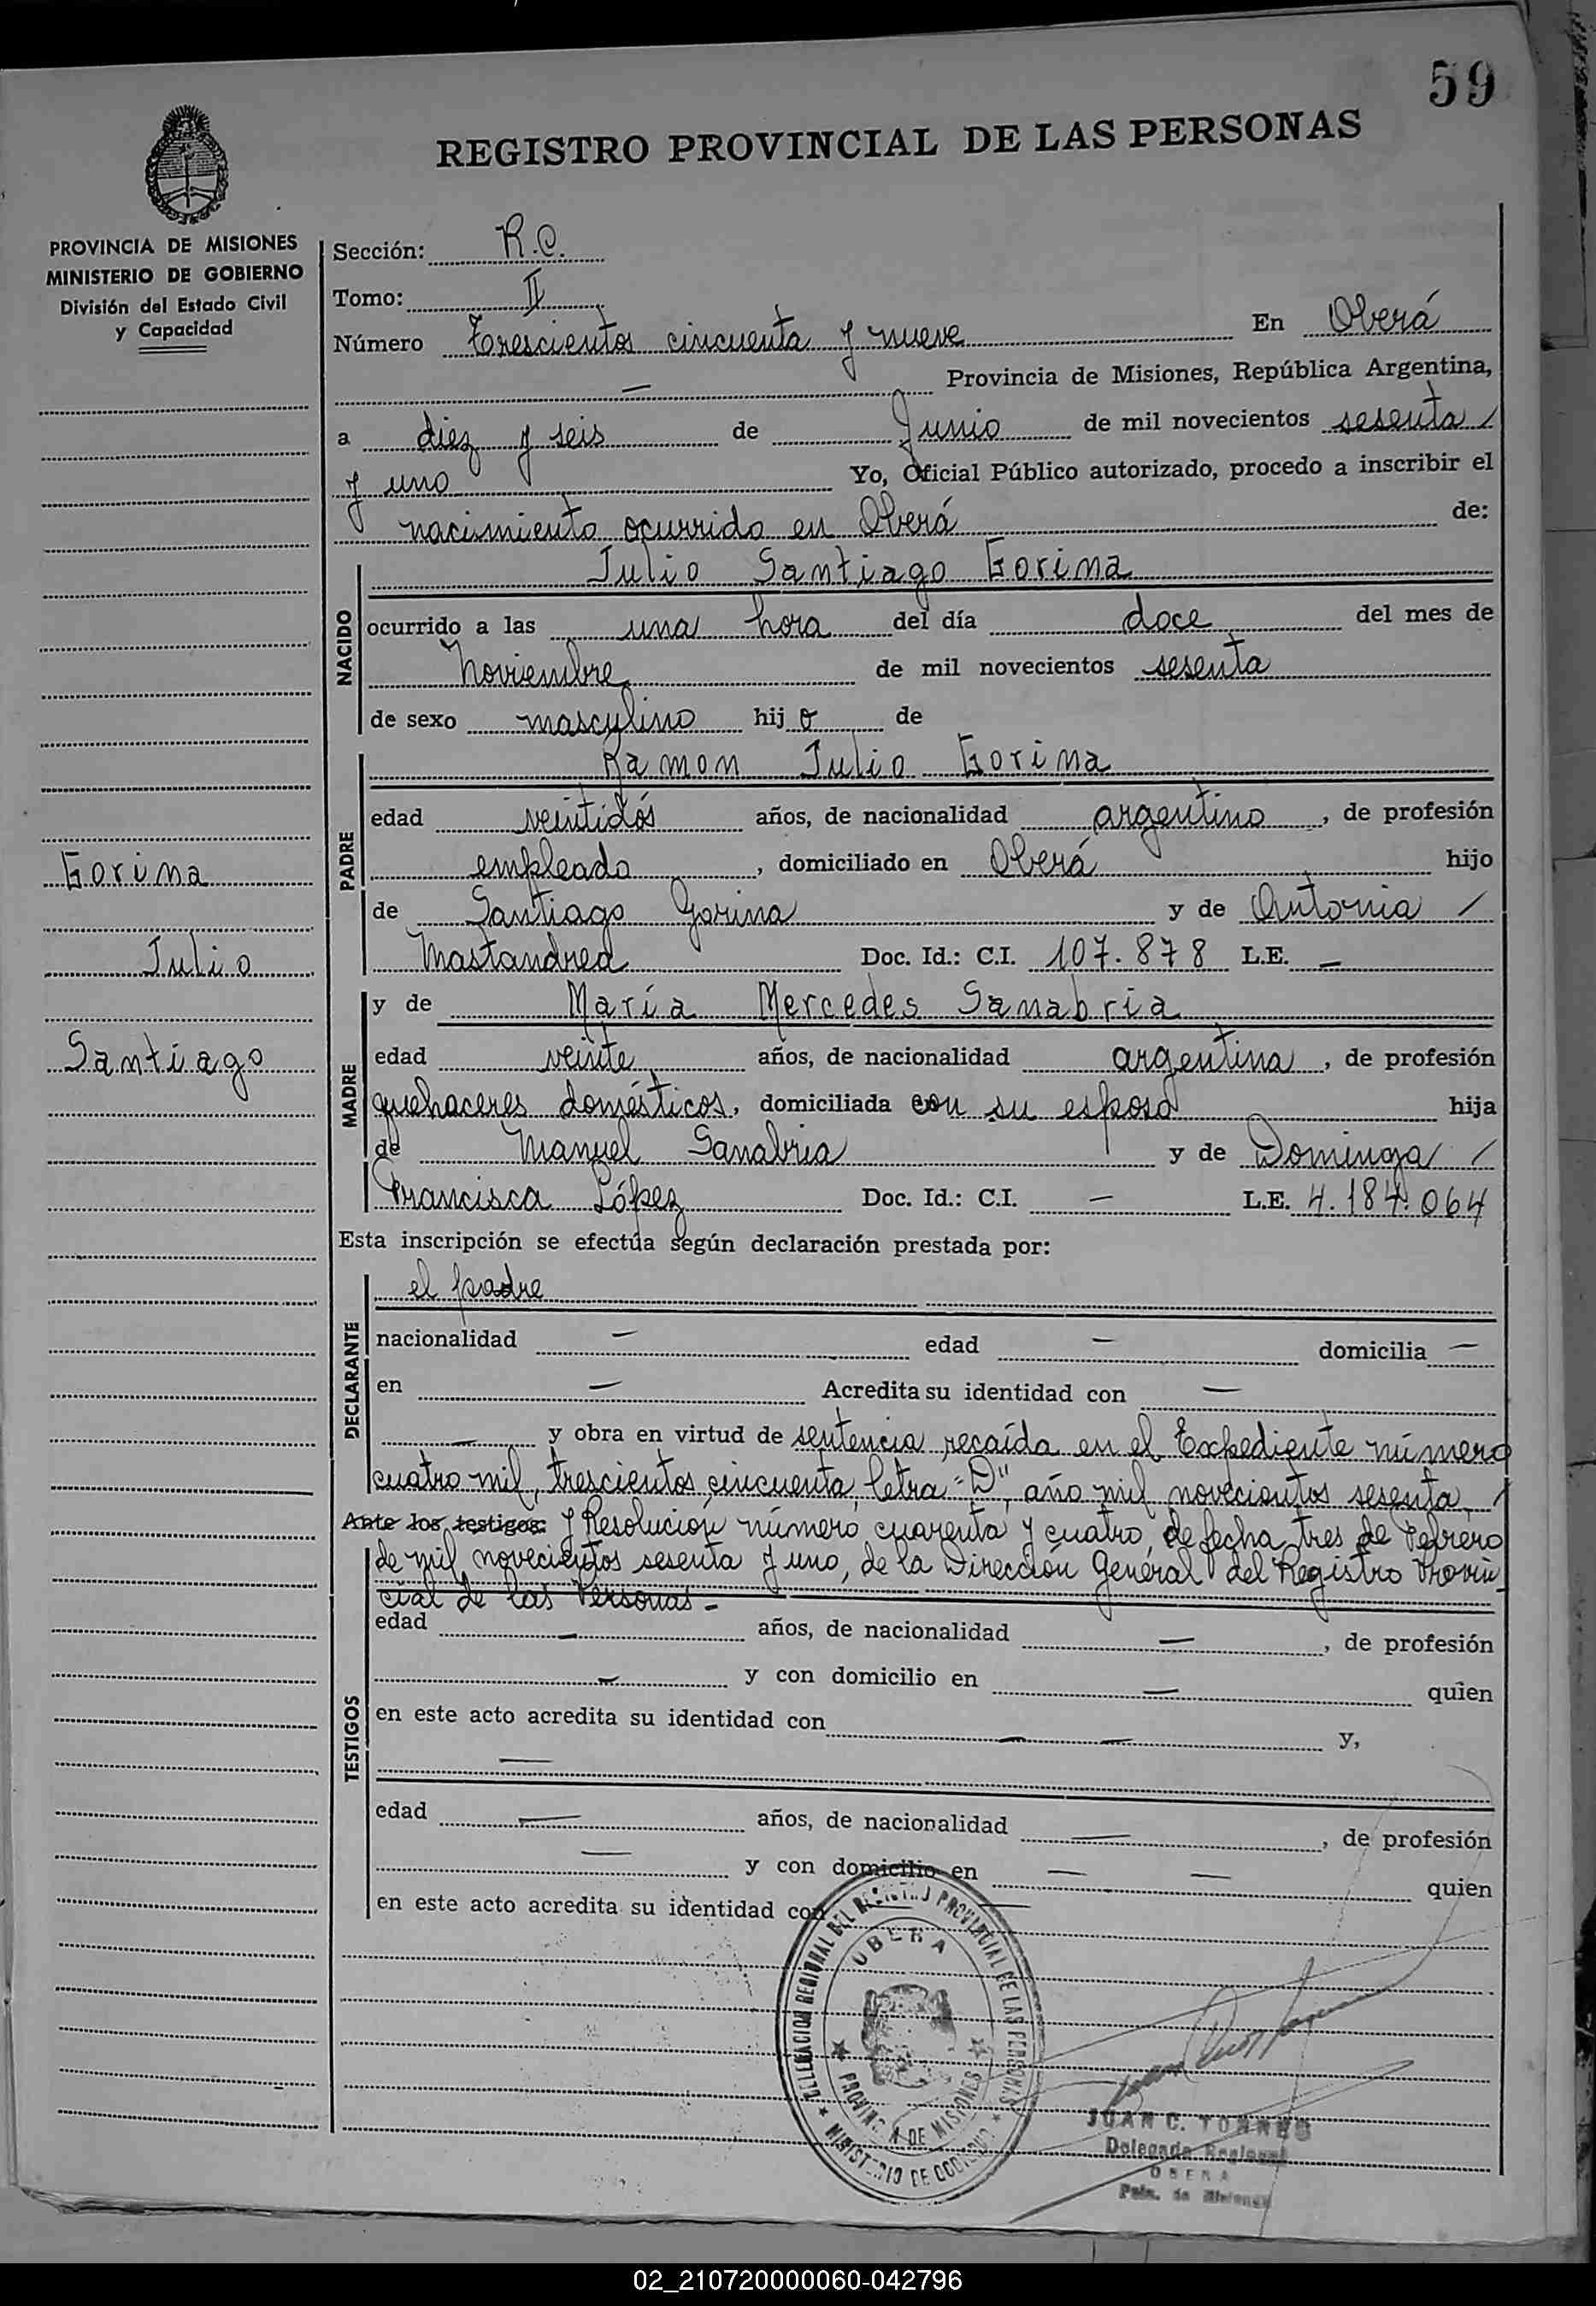 59
REGISTRO PROVINCIAL DE LAS PERSONAS
PROVINCIA DE MISIONES
MINISTERIO DE GOBIERNO
División del Estado Civil
y Capacidad
Sección: R.C.
Tomo: II
Número Trescientos cincuenta y nueve En Oberá
— Provincia de Misiones, República Argentina,
a diez y seis de Junio de mil novecientos sesenta /
y uno Yo, Oficial Público autorizado, procedo a inscribir el
nacimiento ocurrido en Oberá de:
NACIDO
Julio Santiago Gorina
ocurrido a las una hora del día doce del mes de
Noviembre de mil novecientos sesenta
de sexo masculino hijo de
PADRE
Ramon Julio Gorina
edad veintidós años, de nacionalidad argentino, de profesión
empleado, domiciliado en Oberá hijo
de Santiago Gorina y de Antonia /
Mastandrea Doc. Id.: C.I. 107.878 L.E. —
MADRE
y de María Mercedes Sanabria
edad veinte años, de nacionalidad argentina, de profesión
quehaceres domésticos, domiciliada con su esposo hija
de Manuel Sanabria y de Dominga /
Francisca López Doc. Id.: C.I. — L.E. 4.184.064
Gorina
Julio
Santiago
Esta inscripción se efectúa según declaración prestada por:
DECLARANTE
el padre
nacionalidad — edad — domicilia —
en — Acredita su identidad con —
— y obra en virtud de sentencia recaída en el Expediente número
cuatro mil, trescientos cincuenta, letra "D", año mil novecientos sesenta, /
Ante los testigos: y Resolución número cuarenta y cuatro, de fecha tres de Febrero
de mil novecientos sesenta y uno, de la Dirección General del Registro Provin
cial de las Personas.-
TESTIGOS
edad — años, de nacionalidad —, de profesión
— y con domicilio en — quien
en este acto acredita su identidad con — — y,
—
edad — años, de nacionalidad —, de profesión
— y con domicilio en — — quien
en este acto acredita su identidad con
DELEGACION REGIONAL DEL REGISTRO PROVINCIAL DE LAS PERSONAS
OBERA
PROVINCIA DE MISIONES
MINISTERIO DE GOBIERNO
JUAN C. TORRES
Delegado Regional
OBERA
Pcia. de Misiones
02_210720000060-042796